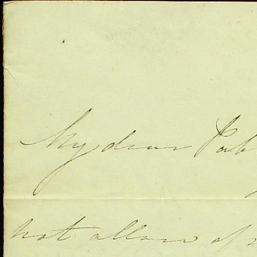 My dear Pab
not allow of